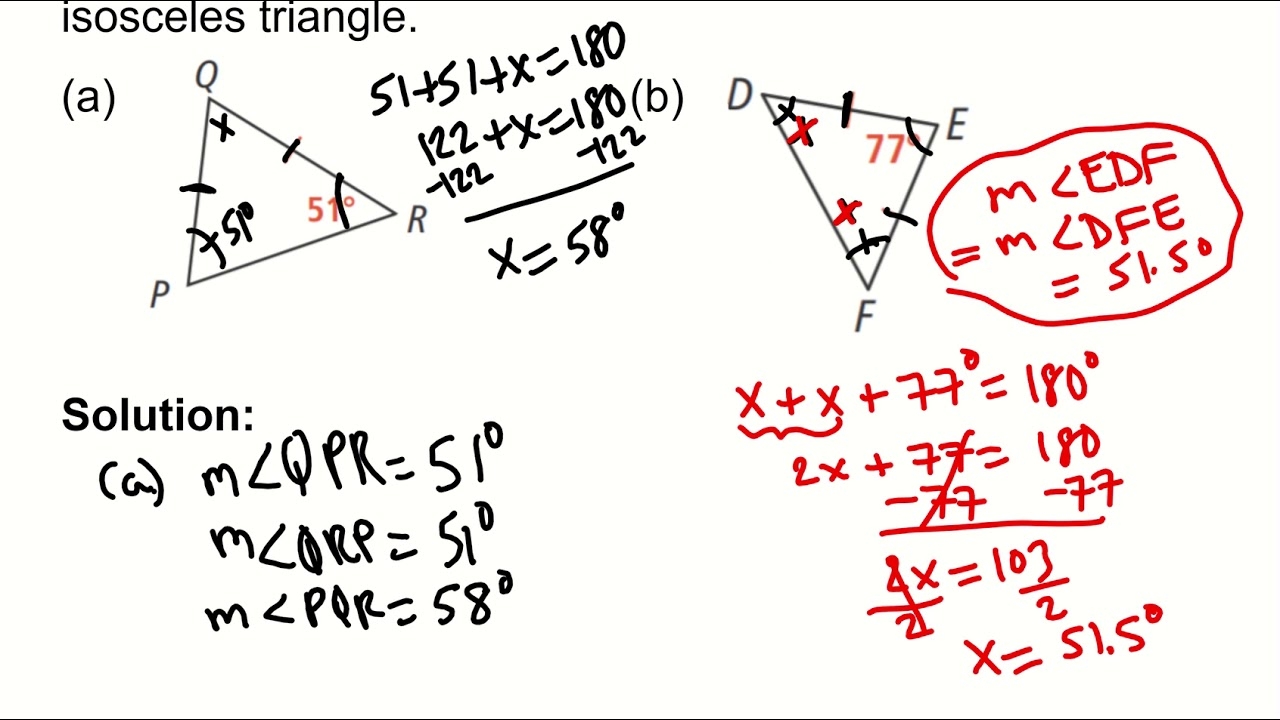 isosceles triangle.
(a)
Q
x
51°
R
51°
P
51+51+x=180
122+x=180
-122 -122
x=58°
(b)
D
x
x
E
77°
x
F
m<EDF
=m<DFE
=51.5°
x+x+77°=180°
2x+77=180
-77 -77
2x=103
2 2
x=51.5°
Solution:
(a) m<QPR=51°
m<QRP=51°
m<PQR=58°